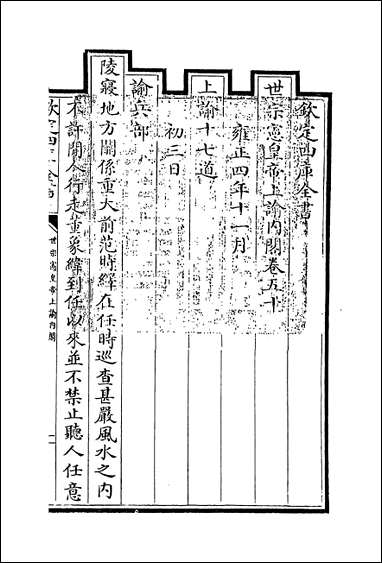 欽定四庫全書
世宗憲皇帝上諭內閣卷五十
雍正四年十一月
上諭十七道
初三日
諭兵部
陵寢地方關係重大前范時繹在任時巡查甚嚴風水之內
不許閒人行走董象緯到任以來並不禁止聽人任意
欽定四庫全書
世宗憲皇帝上諭內閣